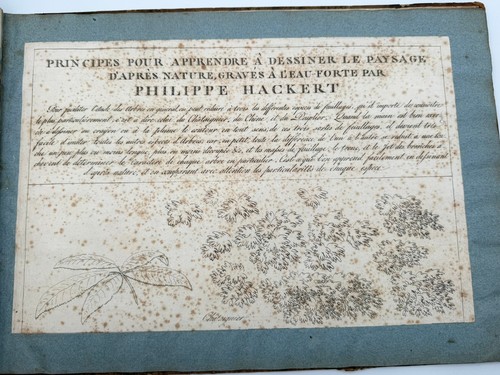 PRINCIPES POUR APPRENDRE À DESSINER LE PAYSAGE
D'APRÈS NATURE, GRAVÉS À L'EAU-FORTE PAR
PHILIPPE HACKERT
Pour faciliter l'étude des Arbres en général, on peut réduire à trois les différentes espèces de feuillages, qu'il importe de connoitre
le plus particulièrement, c'est à dire celui du Chataignier, du Chêne et du Peuplier. Quand la main est bien
à dessiner au crayon ou à la plume le contour en tout sens, de ces trois sortes de feuillages, il devient très
facile d'imiter toutes les autres espèces d'Arbres; car, un petit
plus ou moins et les masses de feuillage, le tronc, et le jet des branches
de déterminer le Caractère de chaque arbre en particulier. C'est ce que l'on apprend facilement en dessinant
d'après nature, et en comparant avec attention les particularités de chaque espèce.